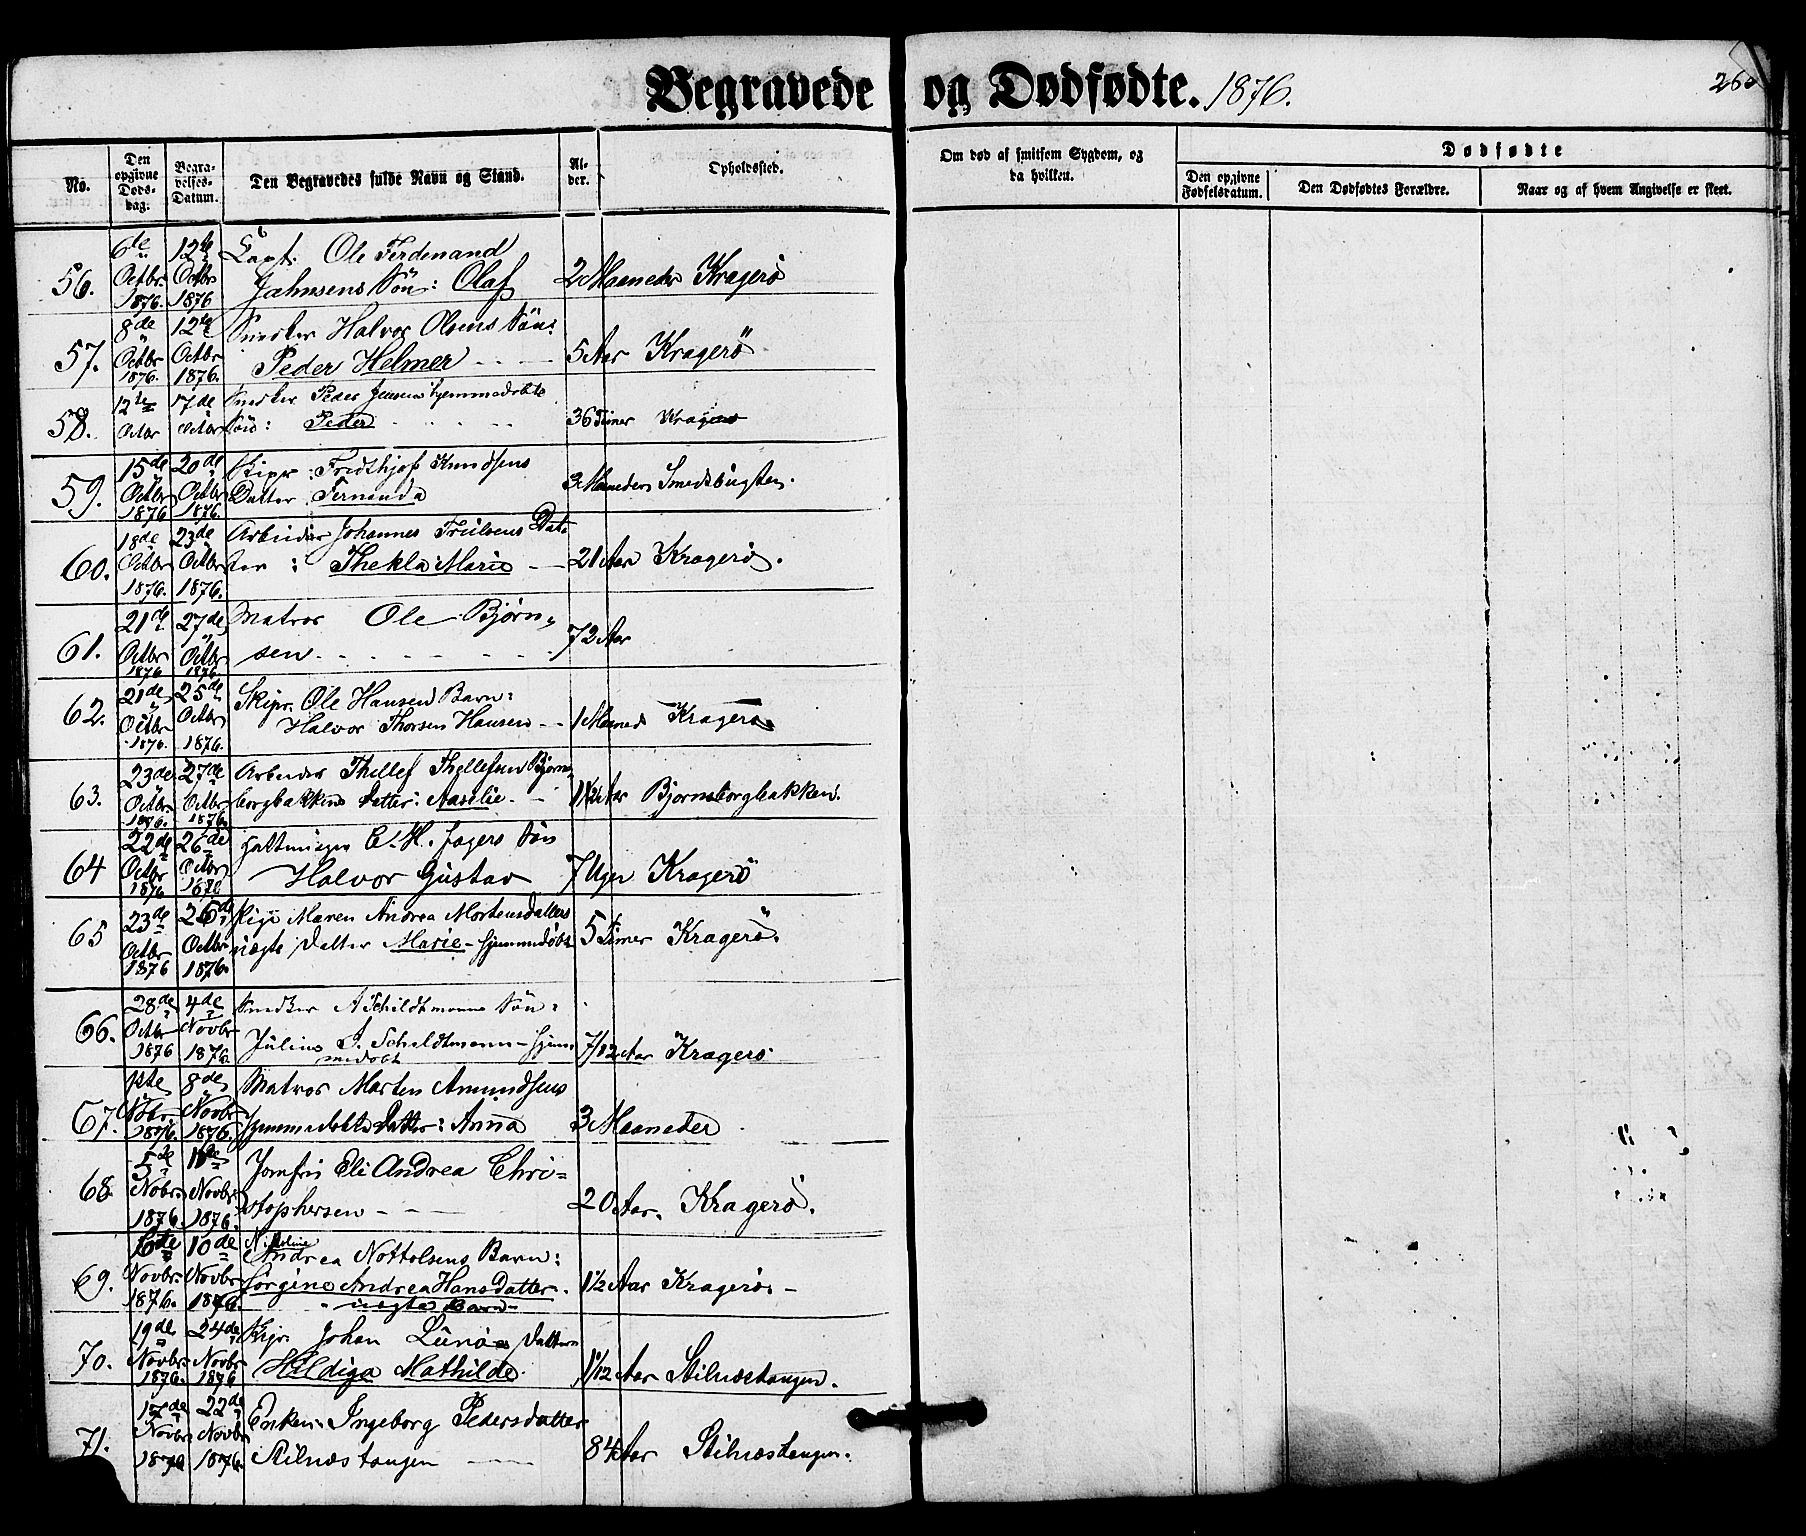 Begravede og Dødfødte. 1876.
260
No.
Den opgivne Døds-dag.
Begra-velses-Datum.
Den Begravedes fulde Navn og Stand.
Al-der.
Opholdssted.
Om død af smitsom Sygdom, og da hvilken.
Dødfødte
Den opgivne Fødselsdatum.
Den Dødfødtes Forældre.
Naar og af hvem Angivelse er skeet.
56. 6te Octbr 1876. 12te Octbr 1876 Capt. Ole Ferdinand
Jahnsens Søn: Olaf 2 Maaneder Kragerö
57. 8de Octbr 1876. 12te Octbr 1876. Snedker Halvor Olsens Søn:
Peder Helmer 5 Aar Kragerö
58. 12te Octbr 17de Octbr Snedker Peder Jensens hjemmedøbte
Søn: Peder 36 Timer Kragerö
59. 15de Octbr 1876 20de Octbr 1876. Skipr. Fridthjof Knudsens
Datter: Fernanda 3 Maaneder Smedsbugten.
60. 18de Octbr 1876. 23de Octbr 1876. Arbeider Johannes TruLsens Dat-
ter: Thekla Marie 21 Aar Kragerö.
61. 21de Octbr 1876 27de Octbr 1876 Matros Ole Bjørn-
sen 72 Aar
62. 21de Octbr 1876. 25de Octbr 1876. Skipr. Ole Hansens Barn:
Halvor Thorsen Hansen 1 Maaned Kragerø
63. 23de Octbr 1876. 27de Octbr 1876. Arbeider Thellef Thellefsen Bjørns-
borgbakkens Datter: Aaselie 1 1/2 Aar Bjornsborgbakken.
64 22de Octbr 1876 26de Octbr 1876 C. H. Fagers Søn
Halvor Gustav 7 Uger Kragerö
65 23de Octbr 1876 26de Octbr 1876. Pige Maren Andrea Mortensdatters
uægte Datter Marie - hjemmedøbt 5 Timer Kragerö.
66. 28de Octbr 1876 4de Novbr 1876. Snedker A Schildtmanns Søn:
Julius S. Schildtmann - hjem-
medøbt 7/12 Aar Kragerö
67. 1ste Nobr. 1876. 8de Novbr 1876. Matros Morten Amundsens
hjemmedøbte Datter: Anna 3 Maaneder
68. 5te Nobr. 1876. 11te Novbr 1876. Jomfru Eli Andrea Chri-
stophersen 20 Aar. Kragerö.
69. 6te Novbr. 1876. 10de Novbr 1876. Nicoline
Andrea Nottolsens Barn:
Jørgine Andrea Hansdatter.
uægte Barn 1 1/2 Aar Kragerö.
70. 19de Novbr 1876. 24de Novbr 1876 Skpr. Johan Lunøes Datter
Hildiga Mathilde 1 1/12 Aar Stilnæstangen.
71. 17de Novbr. 1876 22de Novbr 1876. Enken Ingeborg Pedersdatter
Stilnæstangen 84 Aar Stilnæstangen.